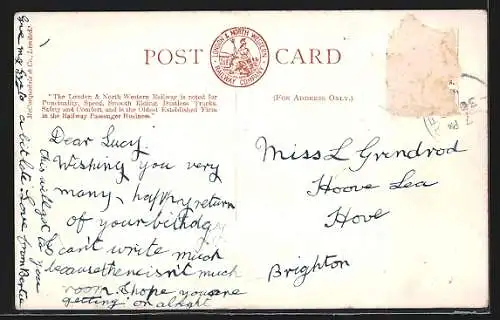 POST CARD
LONDON & NORTH WESTERN
RAILWAY COMPANY
"The London & North Western Railway is noted for
Punctuality, Speed, Smooth Riding, Dustless Tracks,
Safety and Comfort, and is the Oldest Established Firm
in the Railway Passenger Business."
(FOR ADDRESS ONLY.)
McCorquodale & Co., Limited.
Dear Lucy.
Wishing you very
many happy return
of your bithday
can't write much
because there isn't much
room. I hope you are
getting on alright
this will get to you
a bit late. Love from
Give my
Miss L Grindrod
Hoove Lea
Hove
Brighton